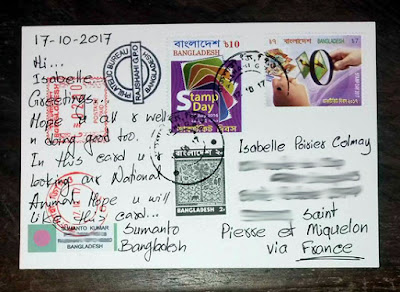 17-10-2017
Hi...
Isabelle
Greetings...
Hope u all r well
n doing good too..!
In this card u r
looking our National
Animal. Hope u will
Like this card...
Sumanto
Bangladesh
SUMANTO KUMAR
BANGLADESH
PHILATELIC BUREAU
RAJSHAHI GPO
BANGLADESH
বাংলাদেশ ৳10
BANGLADESH
Stamp
Day
বাংলাদেশ
BANGLADESH
বাংলাদেশ
BANGLADESH
Isabelle Poisier Colmay
Saint
Pierre et Miquelon
via France